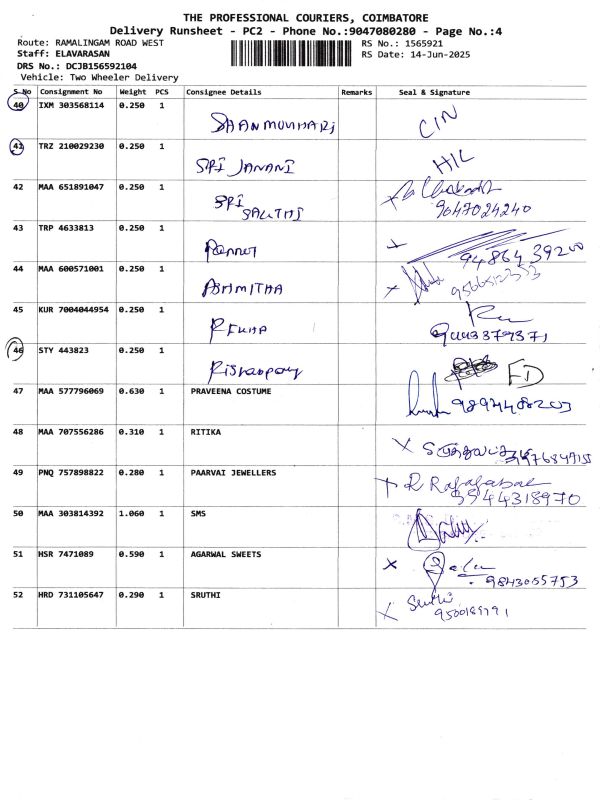 THE PROFESSIONAL COURIERS, COIMBATORE
Delivery Runsheet - PC2 - Phone No.:9047080280 - Page No.:4
Route: RAMALINGAM ROAD WEST RS No.: 1565921
Staff: ELAVARASAN RS Date: 14-Jun-2025
DRS No.: DCJB156592104
Vehicle: Two Wheeler Delivery
S No Consignment No Weight PCS Consignee Details Remarks Seal & Signature
40 IXM 303568114 0.250 1 CIN
41 TRZ 210029230 0.250 1 SRI JANANI HIL
42 MAA 651891047 0.250 1 SRI
9047024240
43 TRP 4633813 0.250 1
44 MAA 600571001 0.250 1 ASHMITHA
45 KUR 7004044954 0.250 1 REKHA
46 STY 443823 0.250 1 FD
47 MAA 577796069 0.630 1 PRAVEENA COSTUME
48 MAA 707556286 0.310 1 RITIKA
49 PNQ 757898822 0.280 1 PAARVAI JEWELLERS
50 MAA 303814392 1.060 1 SMS
51 HSR 7471089 0.590 1 AGARWAL SWEETS
9843055753
52 HRD 731105647 0.290 1 SRUTHI Sruthi